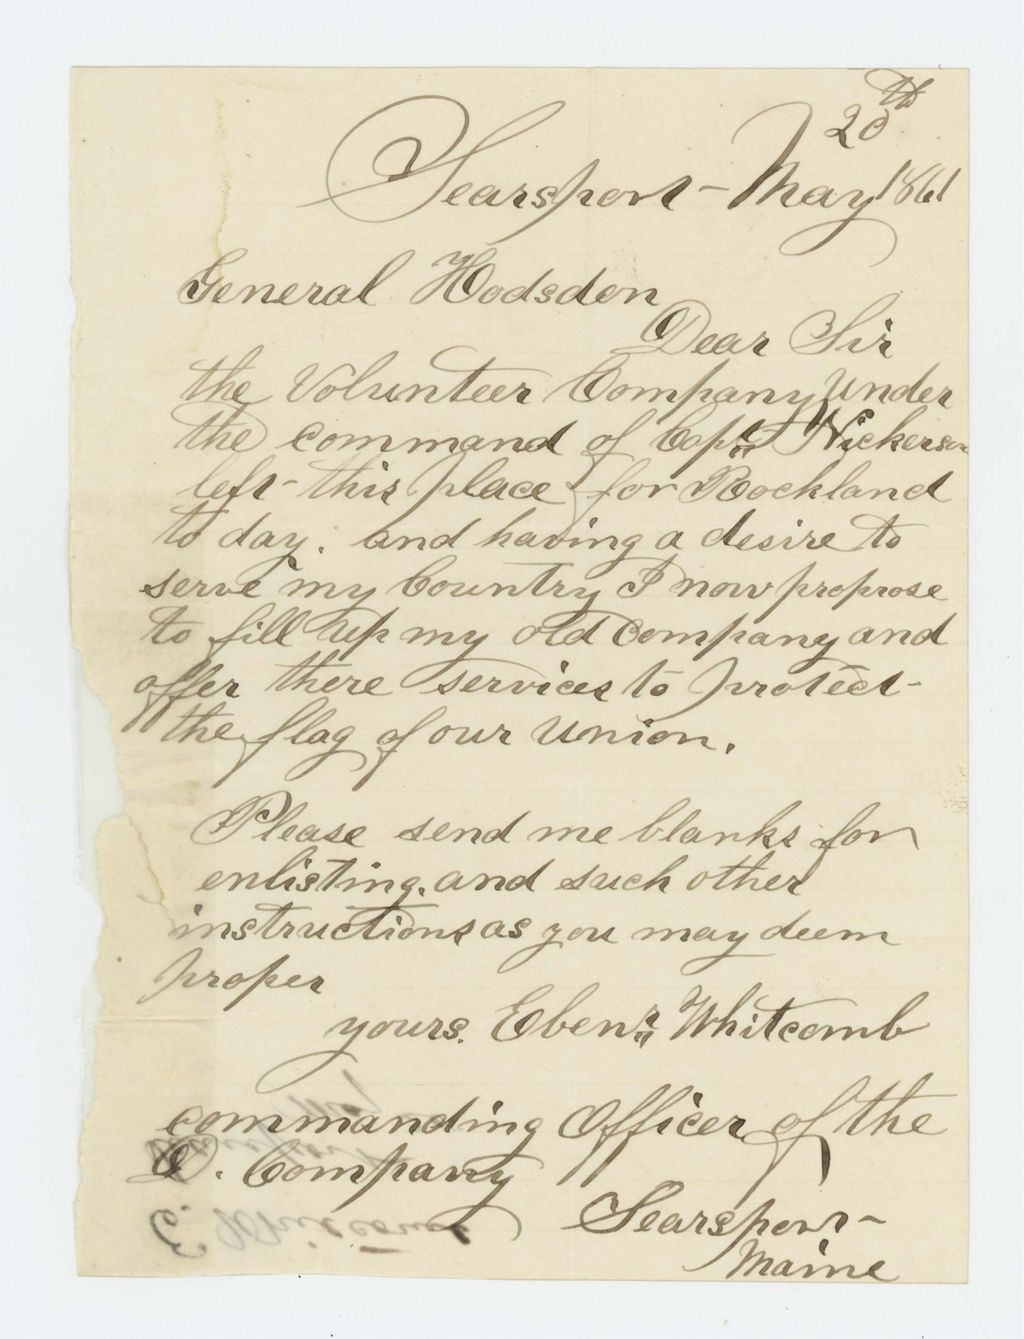 Searsport - May 20th 1861
General Hodsdon
Dear Sir
the Volunteer Company Under
the command of Capt Nickerson
left this place for Rockland
to day. and having a desire to
serve my Country I now propose
to fill up my old Company and
offer there services to protect
the flag of our Union.
Please send me blanks for
enlisting. and such other
instructions as you may deem
proper
yours. Ebenr Whitcomb
commanding Officer of the
D. Company
Searsport
Maine
E. Whitcomb